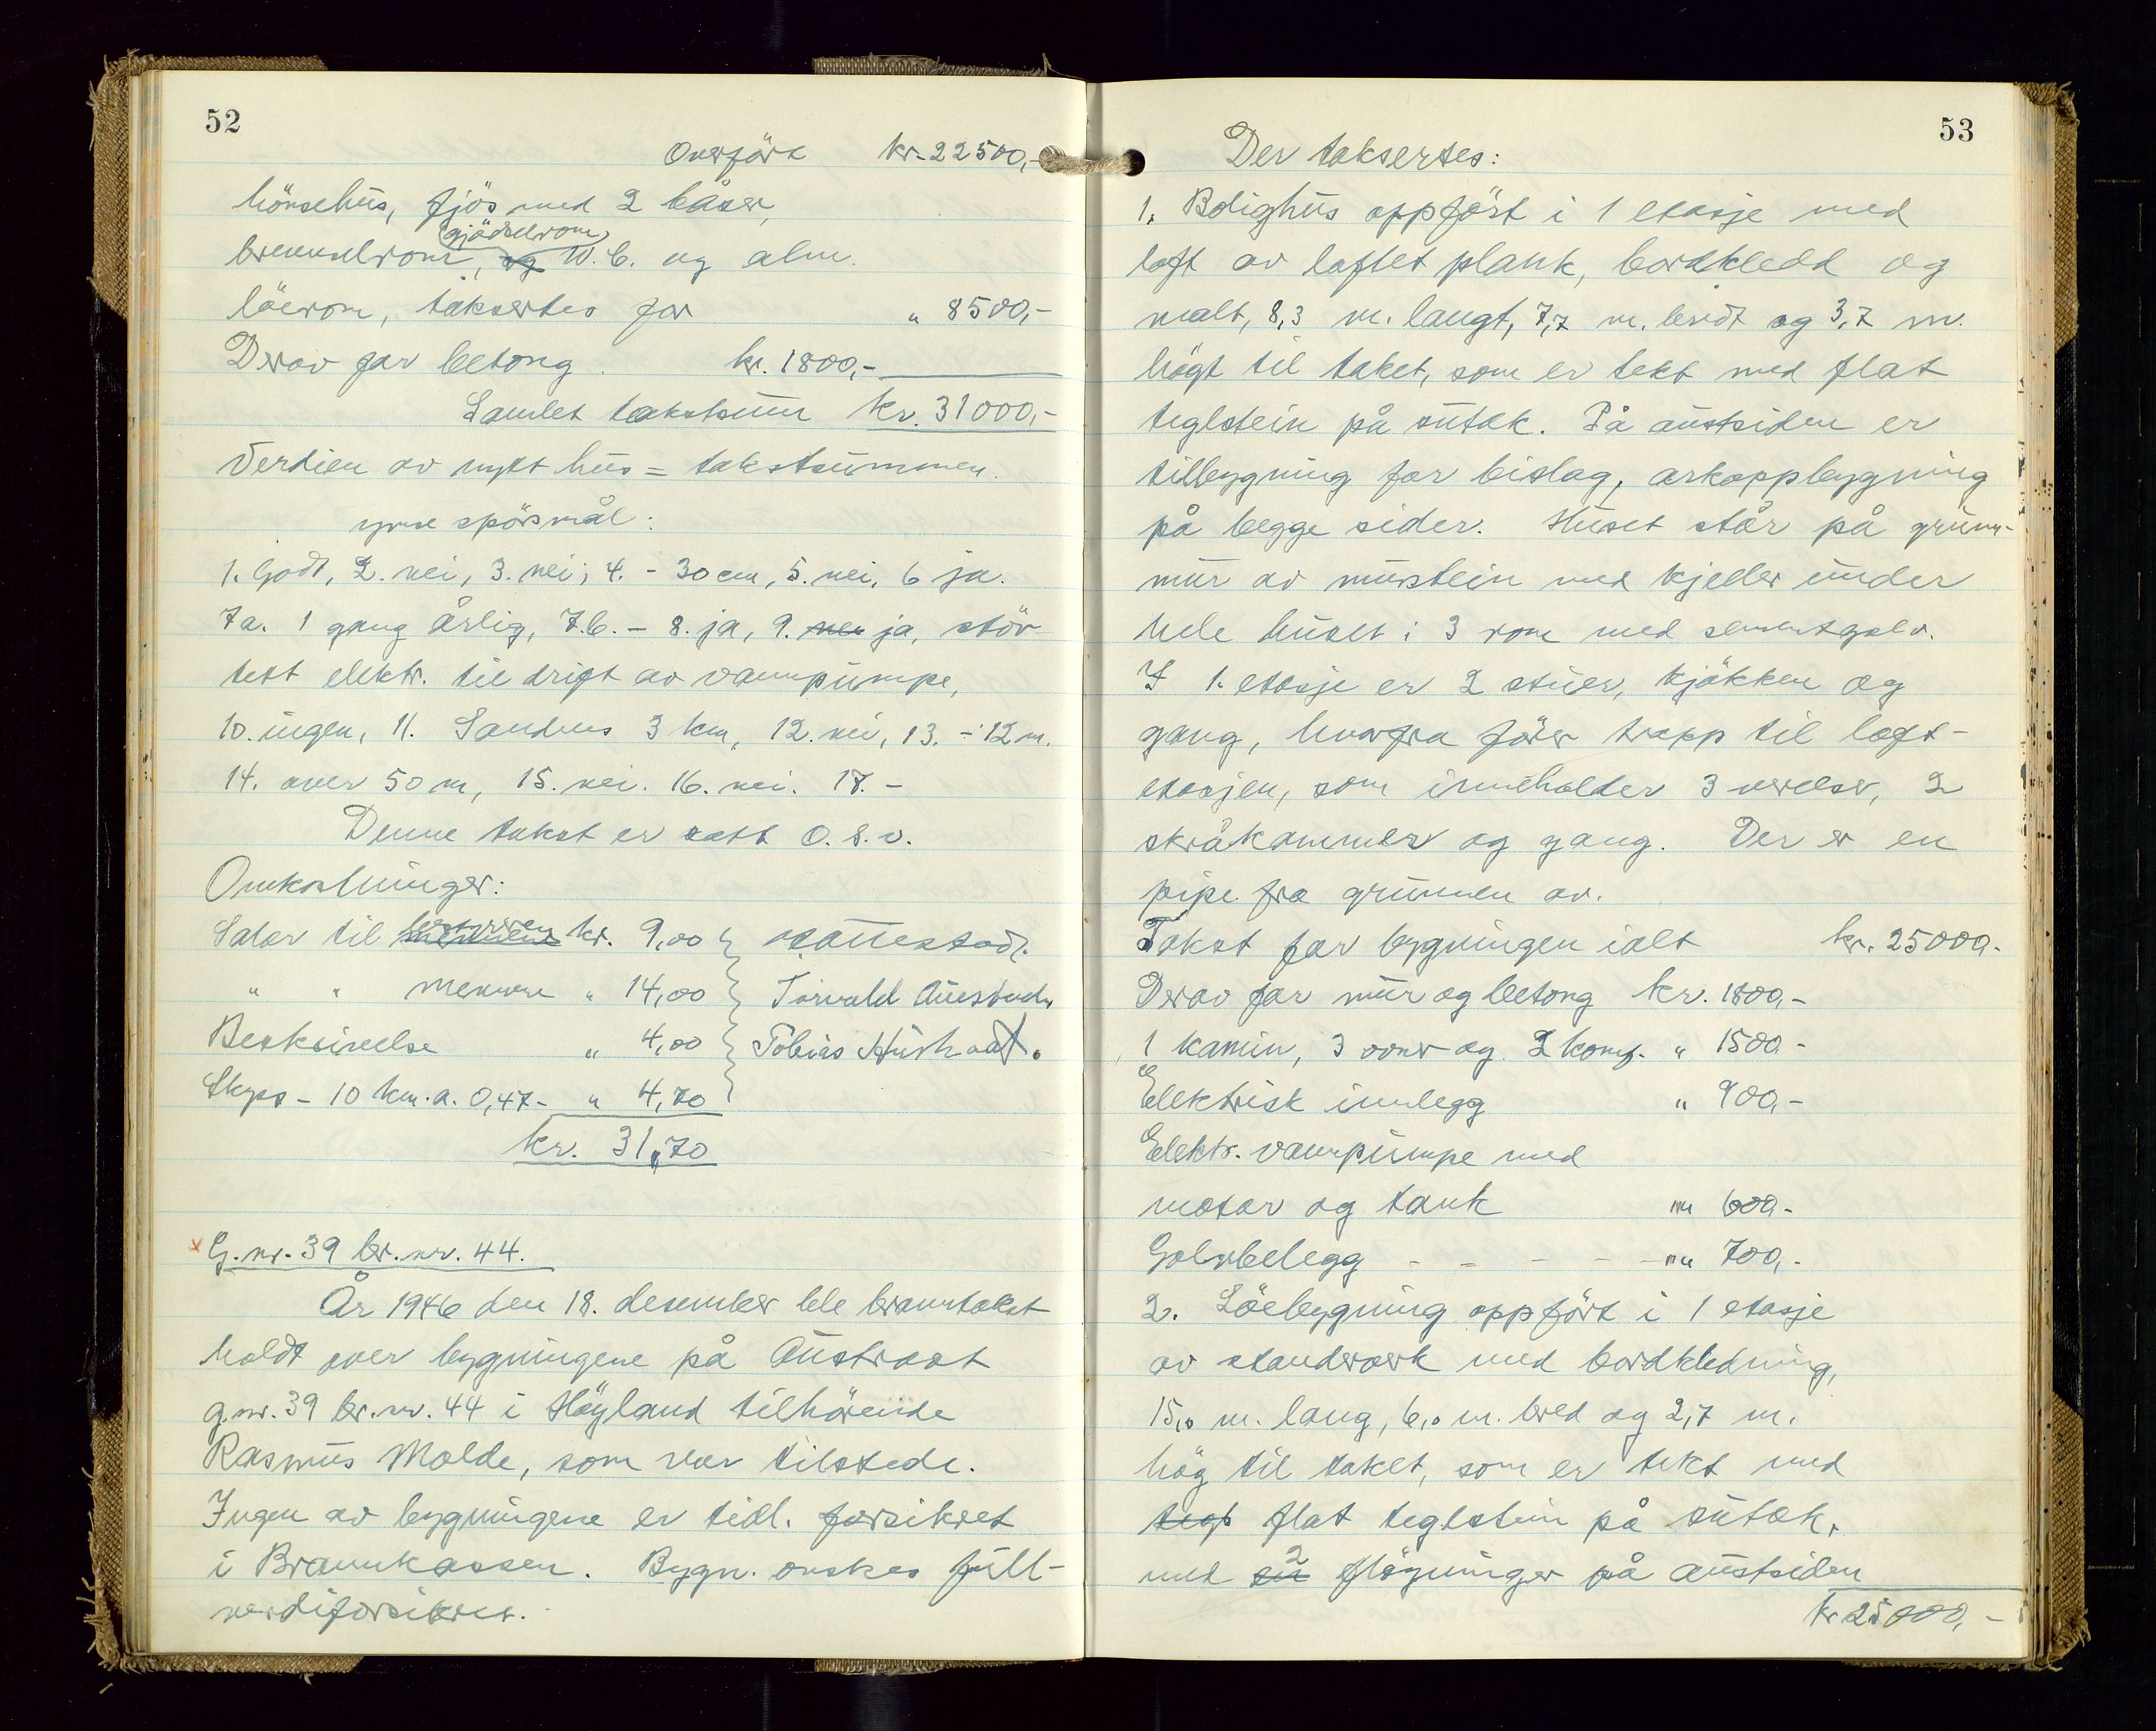 52
Overført kr. 22500,-
hönsehus, fjös med 2 båser,
gjödselrom
brenselrom, og W.C. og alm.
löerom, taksertes for " 8500,-
Derav for betong. kr. 1800,-
Samlet takstsum kr. 31000,-
Verdien av nytt hus = takstsummen.
ymse spörsmål:
1. Godt, 2. nei, 3. nei, 4. - 30 cm, 5. nei, 6 ja.
7a. 1 gang årlig, 7.b. - 8. ja, 9. nei ja, stöv
tett elektr. til drift av vannpumpe,
10. ingen, 11. Sandnes 3 km, 12. nei, 13. - 12 m.
14. over 50 m, 15. nei. 16. nei. 17. -
Denne takst er satt o.s.v.
Omkostninger:
Salær til kr. 9,00
" " mennene " 14,00 Torvald Austvoll
Beskrivelse " 4,00 Tobias
Skyss - 10 km. a. 0,47 - " 4,70
kr. 31,70
x G. nr. 39 br. nr. 44.
År 1946 den 18. desember ble branntakst
holdt over bygningene på Austraat
g.nr. 39 br. nr. 44 i Höyland tilhörende
Rasmus Molde, som var tilstede.
Ingen av bygningene er tidl. forsikret
i Brannkassen. Bygn. önskes full-
verdiforsikret.
53
Der taksertes:
1. Bolighus oppfört i 1 etasje med
loft av laftet plank, bordkledd og
malt, 8,3 m. langt, 7,7 m. bredt og 3,7 m.
högt til taket, som er tekt med flat
teglstein på sutak. På austsiden er
tilbygning for bislag, arkoppbygning
på begge sider. Huset står på grunn-
mur av murstein med kjeller under
hele huset i 3 rom med sementgolv.
I 1. etasje er 2 stuer, kjökken og
gang, hvorfra förer trapp til loft-
etasjen, som inneholder 3 verelser, 2
skråkammer og gang. Der er en
pipe fra grunnen av.
Takst for bygningen ialt kr. 25000.-
Derav for mur og betong kr. 1800,-
1 kamin, 3 ovner og 2 komf. " 1500-
Elektrisk innlegg " 900,-
Elektr. vannpumpe med
motor og tank " 600.-
Golvbelegg - - - - - " 700,-
2. Löebygning oppfört i 1 etasje
av standverk med bordkledning,
15,0 m. lang, 6,0 m. bred og 2,7 m.
hög til taket, som er tekt med
tegl flat teglstein på sutak,
med en 2 flögninger på austsiden
kr 25000,-